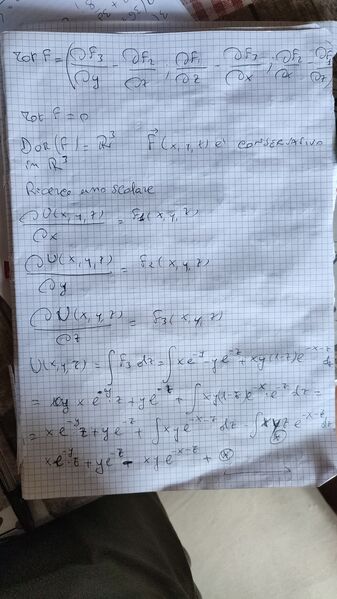 rot F = (∂F3/∂y - ∂F2/∂z ; ∂F1/∂z - ∂F3/∂x ; ∂F2/∂x - ∂F1/∂
rot F = 0
Dom(F) = R³ F(x, y, z) è CONSERVATIVO
in R³
Ricerco uno scalare
∂U(x, y, z)/∂x = F1(x, y, z)
∂U(x, y, z)/∂y = F2(x, y, z)
∂U(x, y, z)/∂z = F3(x, y, z)
U(x,y,z) = ∫ F3 dz = ∫ xe^-y - ye^-z + xy(1-z)e^-x-z dz
= x e^-y z + ye^-z + ∫ xy(1-z)e^-x · e^-z dz =
= x e^-y z + ye^-z + ∫ xy e^-x-z dz - ∫ xyz e^-x-z dz
xe^-y z + ye^-z - xy e^-x-z + (*)